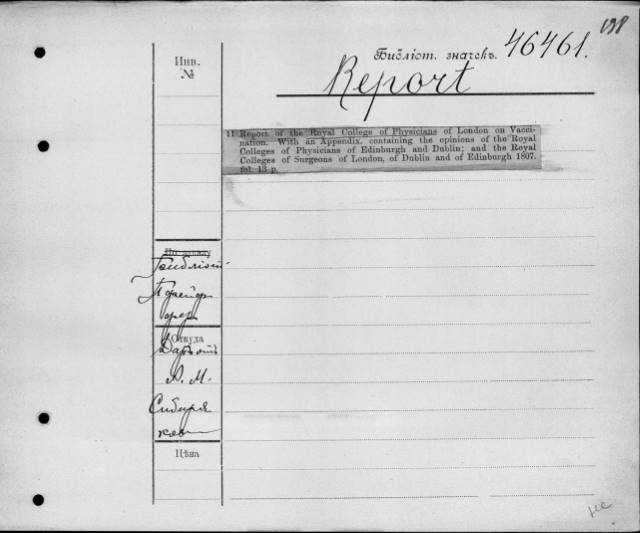 138
Библіот. значекъ. 46461.
Report
Инв.
№
11 Report of the Royal College of Physicians of London on Vacci-
nation. With an Appendix, containing the opinions of the Royal
Colleges of Physicians of Edinburgh and Dublin; and the Royal
Colleges of Surgeons of London, of Dublin and of Edinburgh 1807.
fol. 13 p.
Откуда
Даръ отъ
А. М.
Сибиря
кова
Цѣна